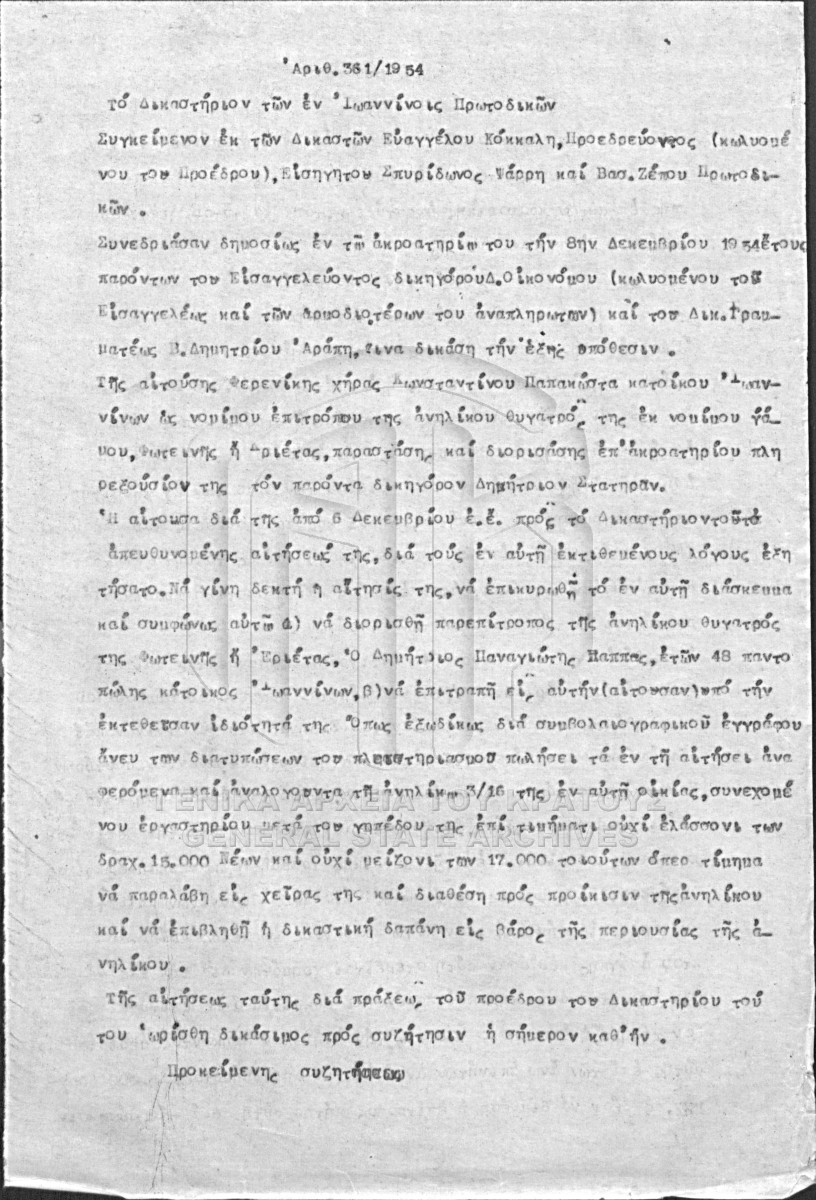 Ἀριθ. 361/1954
Τό Δικαστήριον τῶν ἐν Ἰωαννίνοις Πρωτοδικῶν
Συγκείμενον ἐκ τῶν Δικαστῶν Εὐαγγέλου Κόκκαλη, Προεδρεύοντος (κωλυομέ
νου του Προέδρου), Εἰσηγητου Σπυρίδωνος Ψάρρη καί Βασ. Ζέπου Πρωτοδι-
κῶν.
Συνεδριάσαν δημοσίως ἐν τῷ ἀκροατηρίῳ του τήν 8ην Δεκεμβρίου 1954 ἔτους
παρόντων του Εἰσαγγελεύοντος δικηγόρου Δ. Οἰκονόμου (κωλυομένου τοῦ
Εἰσαγγελέως καί τῶν ἁρμοδιοτέρων του ἀναπληρωτων) καί του Δικ. Γραμ-
ματέως Β. Δημητρίου Ἀράπη, ἵνα δικάση τήν ἑξῆς ὑπόθεσιν.
Τῆς αἰτούσης Φερενίκης χήρας Κωνσταντίνου Παπακώστα κατοίκου Ἰωαν-
νίνων ὡς νομίμου ἐπιτρόπου της ἀνηλίκου θυγατρός της ἐκ νομίμου γά-
μου, Φωτεινῆς ἤ Ἀριέτας, παραστάσης καί διορισάσης ἐπ' ἀκροατηρίου πλη
ρεξούσιον της τόν παρόντα δικηγόρον Δημήτριον Στατηραν.
Ἡ αἰτουσα διά τῆς ἀπό 6 Δεκεμβρίου ἐ.ἔ. πρός τό Δικαστήριον τοῦτο
ἀπευθυνομένης αἰτήσεώς της, διά τούς ἐν αὐτῇ ἐκτιθεμένους λόγους ἐξη
τήσατο. Νά γίνη δεκτή ἡ αἴτησίς της, νά ἐπικυρωθῇ τό ἐν αὐτῇ διάσκεμμα
καί συμφώνως αὐτῷ α) νά διορισθῇ παρεπίτροπος τῆς ἀνηλίκου θυγατρός
της Φωτεινῆς ἤ Ἐριέτας, Ὁ Δημήτριος Παναγιώτης Παππας, ἐτῶν 48 παντο
πώλης κάτοικος Ἰωαννίνων, β) νά ἐπιτραπῆ εἰς αὐτήν (αἰτουσαν) υπό τήν
ἐκτεθεῖσαν ἰδιότητά της Ὅπως ἐξωδίκως διά συμβολαιογραφικοῦ ἐγγράφου
ἄνευ των διατυπώσεων του πλειστηριασμου πωλήσει τά ἐν τῇ αἰτήσει ἀνα
φερόμενα καί ἀναλογουντα τῇ ἀνηλίκῳ 3/16 τῆς ἐν αὐτῇ οἰκίας, συνεχομέ
νου ἐργαστηρίου μετά του γηπέδου της ἐπί τιμήματι οὐχί ἐλάσσονι των
δραχ. 15.000 Νέων καί οὐχί μείζονι των 17.000 τοιούτων ὅπερ τίμημα
νά παραλάβη εἰς χεῖρας της καί διαθέση πρός προίκισιν τῆς ἀνηλίκου
καί νά ἐπιβληθῇ ἡ δικαστική δαπάνη εἰς βάρος τῆς περιουσίας τῆς ἀ-
νηλίκου.
Τῆς αἰτήσεως ταύτης διά πράξεως τοῦ προέδρου του Δικαστηρίου τού
του ὡρίσθη δικάσιμος πρός συζήτησιν ἡ σήμερον καθ' ἥν.
Προκείμενης συζητήσεως
ΓΕΝΙΚΑ ΑΡΧΕΙΑ ΤΟΥ ΚΡΑΤΟΥΣ
GENERAL STATE ARCHIVES